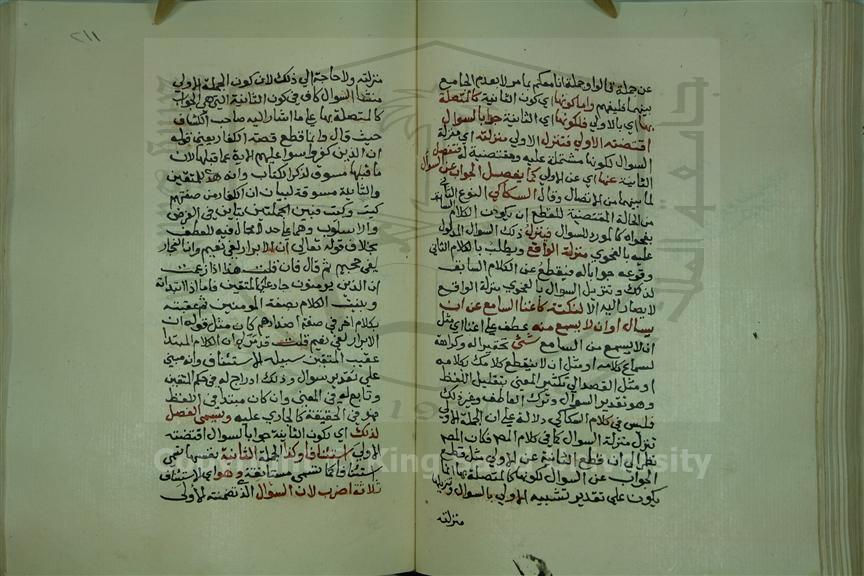 عن جملة في الواو جملة انا معكم بامر لا يعدم الجامع
بينهما فليفهم واما كونها اي كون الثانية كالمتصلة
بها اي بالاولى فلكونها اي الثانية جوابا لسوال
اقتضته الاولى فتنزل الاولى منزلته اي منزلة
السوال لكونها مشتملة عليه ومقتضية له فتفصل
الثانية عنها اي عن الاولى كما يفصل الجواب عن السوال
لما بينهما من الاتصال وقال السكاكي النوع الثاني
من الحالة المقتضية للقطع ان يكون الكلام السابق
بفحواه كالمورد للسوال فينزل ذلك السوال المدلول
عليه بالفحوى منزلة الواقع ويطلب بالكلام الثاني
وقوعه جوابا له فيقطع عن الكلام السابق
لذلك وتنزيل السوال بالفحوى منزلة الواقع
لا يصار اليه الا لنكتة كاغنا السامع عن ان
يسال او ان لا يسمع منه عطف على اغنا اي مثل
ان لا يسمع من السامع شئ تحقيرا له وكراهة
لسماع كلامه او مثل ان لا ينقطع كلامك بكلامه
او مثل القصد الى تكثير المعنى بتقليل اللفظ
وهو تقدير السوال وترك العاطف وغير ذلك
فليس في كلام السكاكي دلالة على ان الجملة الاولى
تنزل منزلة السوال كما في كلام المص فكان المص
نظر الى ان قطع الثانية عن الاولى مثل قطع
الجواب عن السوال لكونها كالمتصلة بها انما
يكون على تقدير تشبيه الاولى بالسوال وتنزيلها
منزلته
٢١١
منزلته ولا حاجة الى ذلك لان كون الجملة الاولى
منشا السوال كاف في كون الثانية التي هي الجواب
كالمتصلة بها على ما اشار اليه صاحب الكشاف
حيث قال وانما قطع قصة الكفار يعني قوله
ان الذين كفروا سواء عليهم الاية عما قبلها لان
ما قبلها مسوق لذكر الكتاب وانه هدى للمتقين
والثانية مسوقة لبيان ان الكفار من صفتهم
كيت وكيت فبين الجملتين تباين في الغرض
والاسلوب وهما على حد لا مجال فيه للعطف
بخلاف قوله تعالى ان الابرار لفي نعيم وان الفجار
لفي جحيم ثم قال فان قلت هذا اذا زعمت
ان الذين يومنون جار على المتقين فاما اذا ابتداته
وبنيت الكلام بصفة المومنين ثم عقبته
بكلام اخر في صفة اضدادهم كان مثل قوله ان
الابرار لفي نعيم قلت قد مر لي ان الكلام المبتدا
عقيب المتقين سبيله الاستئناف وانه مبني
على تقدير سوال وذلك ادراج له في حكم المتقين
وتابع له في المعنى وان كان مبتدا في اللفظ
فهو في الحقيقة كالجاري عليه ويسمى الفصل
لذلك اي لكون الثانية جوابا لسوال اقتضته
الاولى استئنافا وكذا الجملة الثانية نفسها تسمى
استئنافا كما تسمى مستانفة وهو اي الاستئناف
ثلاثة اضرب لان السوال الذي تضمنته الاولى